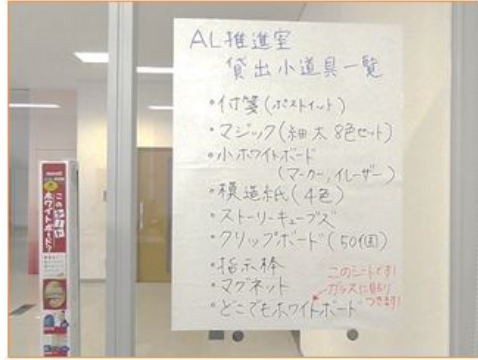 AL推進室
貸出小道具一覧
・付箋(ポストイット)
・マジック(細太 8色セット)
・小ホワイトボード
(マーカー,イレーザー)
・模造紙(4色)
・ストーリーキューブズ
・クリップボード(50個)
・指示棒
・マグネット
・どこでもホワイトボード
このシートです!
ガラスに貼り
つきます!
ホワイトボード?